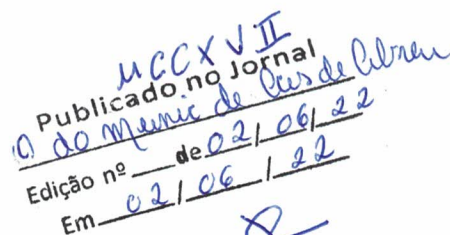 MCCXVII
Publicado no Jornal
O do Munic de Cris de Abreu
Edição nº ___ de 02/ 06/ 22
Em 02 / 06 / 22